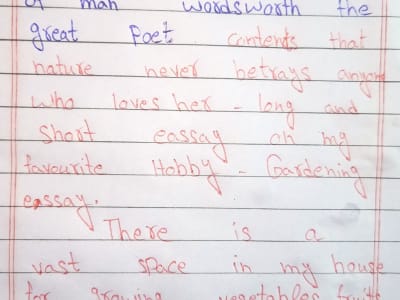 of man Wordsworth the
great Poet contents that
nature never betrays anyone
who loves her - long and
Short eassay on my
favourite Hobby - Gardening
eassay.
There is a
vast space in my house
for growing vegetables fruits